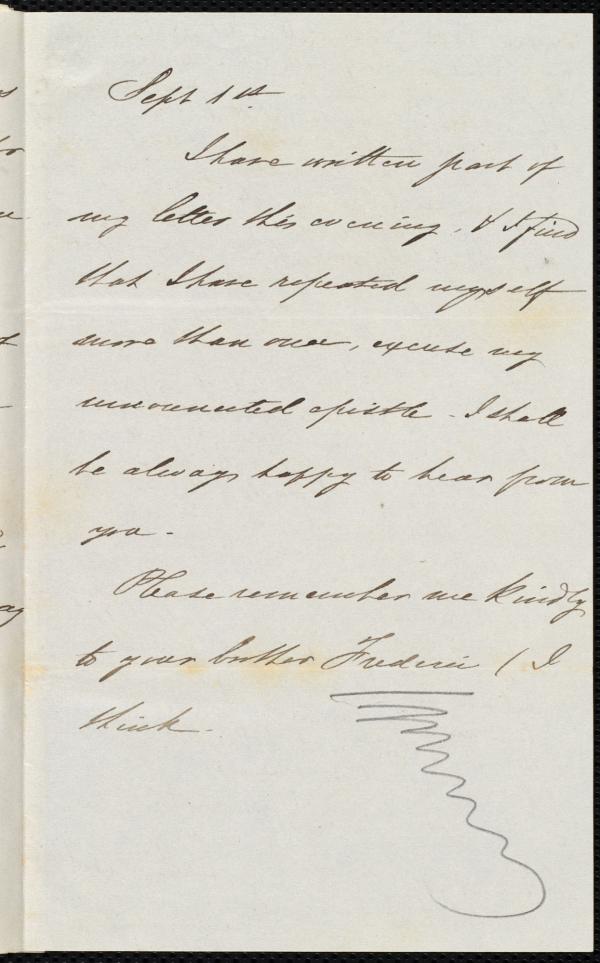 Sept 1st
I have written part of
my letter this evening, & I find
that I have repeated myself
more than once, excuse my
unconnected epistle - I shall
be always happy to hear from
you -
Please remember me kindly
to your brother Frederic ( I
think -